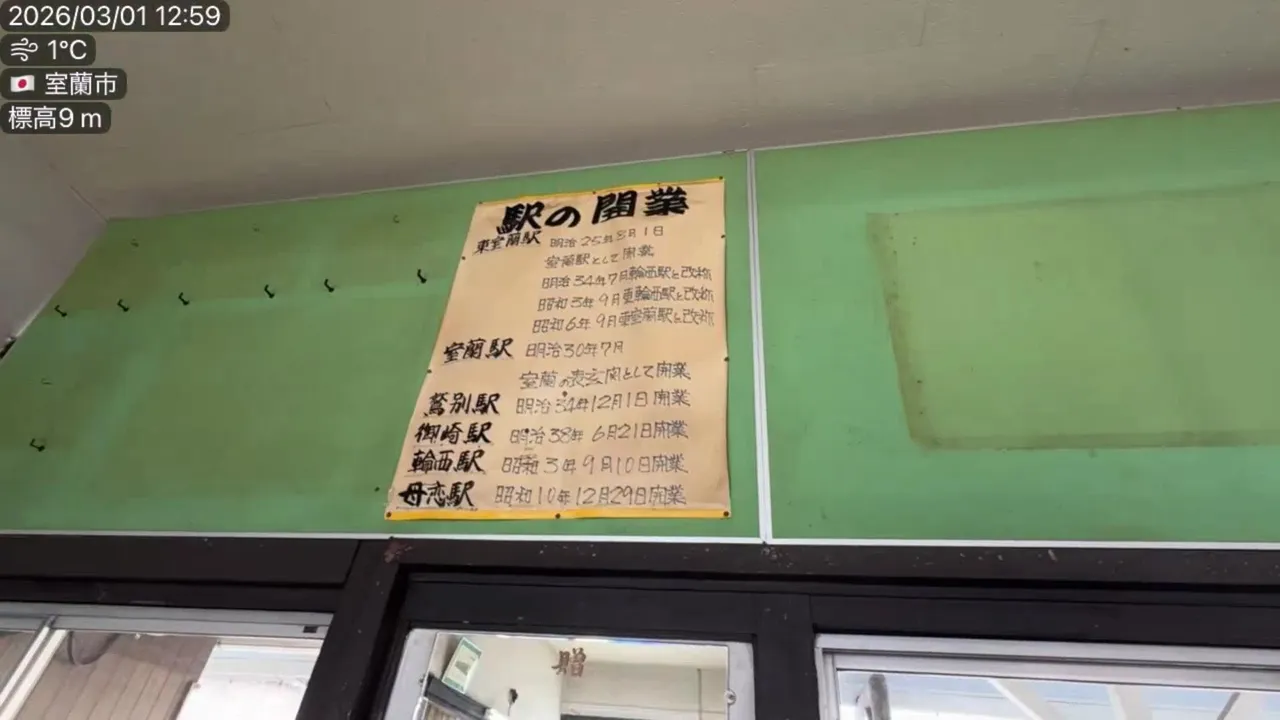 2026/03/01 12:59
1°C
室蘭市
標高9m
駅の開業
東室蘭駅 明治25年8月1日
室蘭駅として開業
明治34年7月輪西駅と改称
昭和3年9月東輪西駅と改称
昭和6年9月東室蘭駅と改称
室蘭駅 明治30年7月
室蘭の表玄関として開業
鷲別駅 明治34年12月1日開業
御崎駅 明治38年6月21日開業
輪西駅 昭和3年9月10日開業
母恋駅 昭和10年12月29日開業
贈